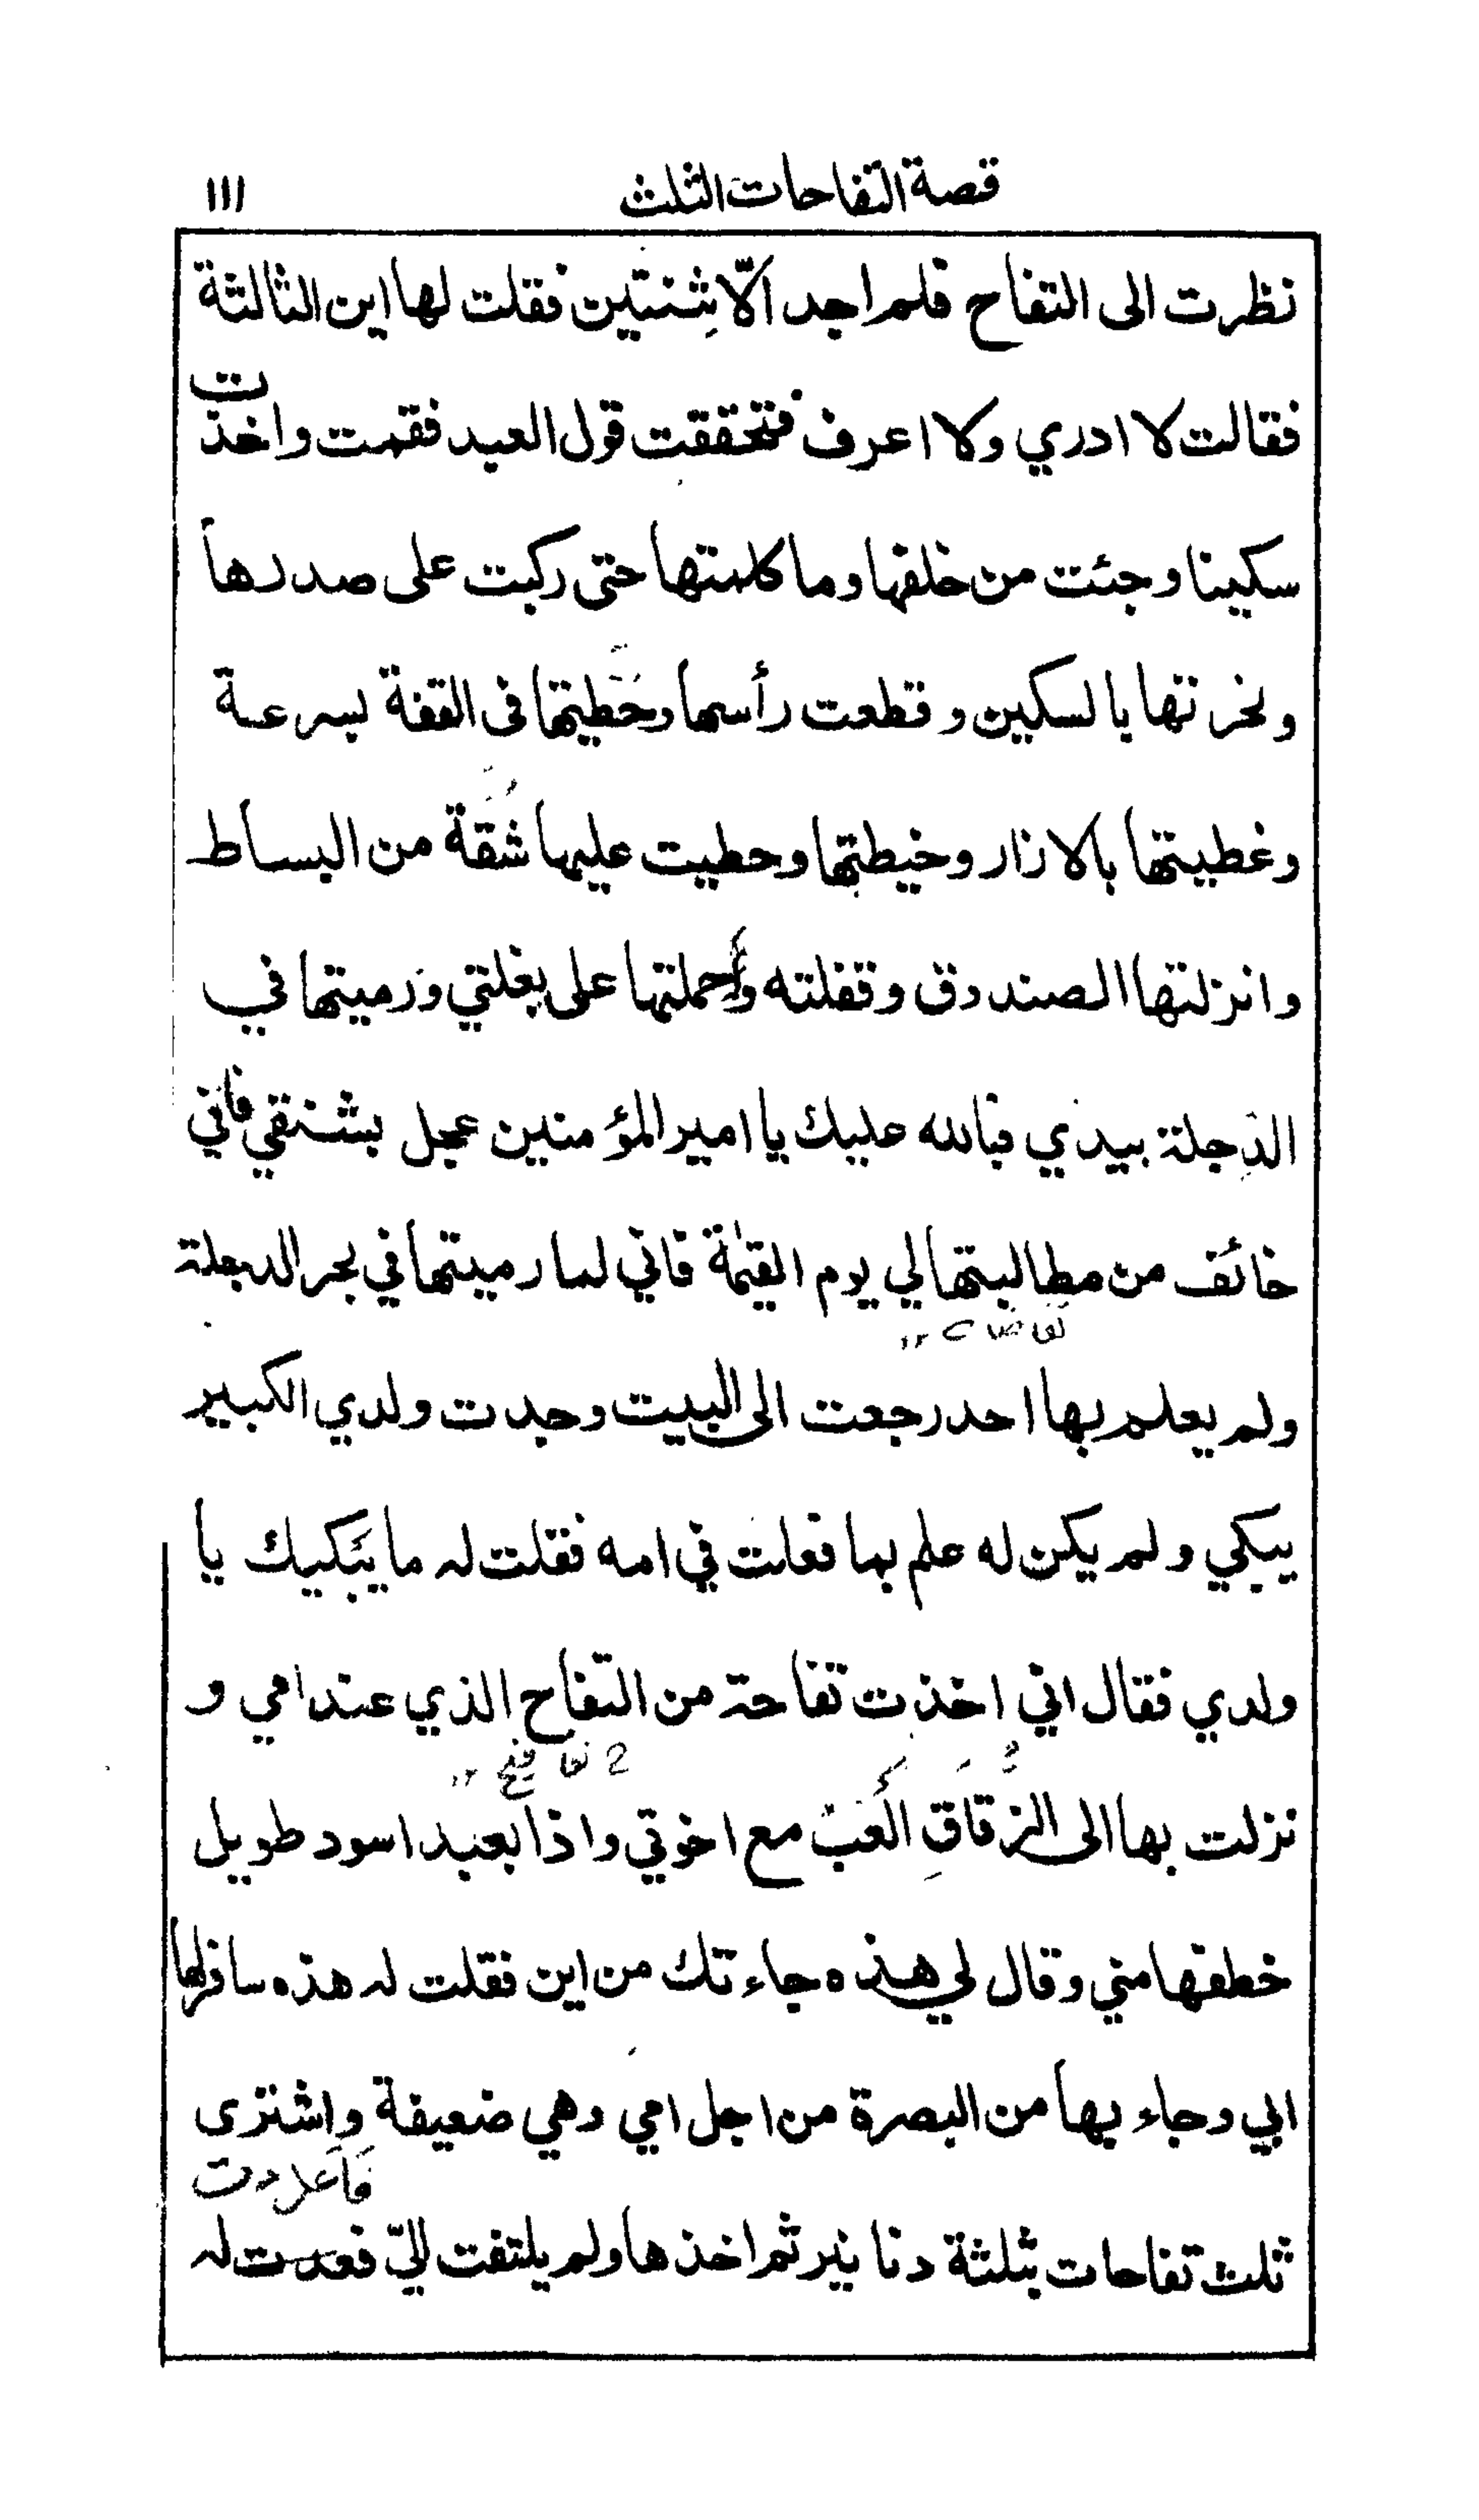 قصة التفاحات الثلث ١١١
نظرت الى التفاح فلم اجد الّا ثِنتين فقلت لها اين الثالثة
فقالت لا ادري ولا اعرف فتحققت قول العبد فقمت واخذت
سكينا وجئت من خلفها وما كلمتها حتى ركبت على صدرها
ونحرتها بالسكين وقطعت رأسها وحَطيتها فى القفة بسرعة
وغطيتها بالازار وخيطتها وحطيت عليها شُقَة من البساط
وانزلتها الصندوق وقفلته وأحملتها على بغلتي ورميتها في
الدجلة بيدي فبالله عليك يا امير المؤمنين عجل بشنقي فاني
خائف من مطالبتها لي يوم القيٰمة فاني لما رميتها في بحر الدجلة
ولم يعلم بها احد رجعت الى البيت وجدت ولدي الكبير
يبكي ولم يكن له علم بما فعلت في امه فقلت له ما يبكيك يا
ولدي فقال اني اخذت تفاحة من التفاح الذي عند امي و
نزلت بها الى الزقاقِ العَب مع اخوتي واذا بعبد اسود طويل
خطفها مني وقال لي هذه جاءتك من اين فقلت له هذه سافر لها
ابي وجاء بها من البصرة من اجل امي وهي ضعيفة واشترى
فأعدت
ثلث تفاحات بثلثة دنانير ثم اخذها ولم يلتفت اليّ فعدت له